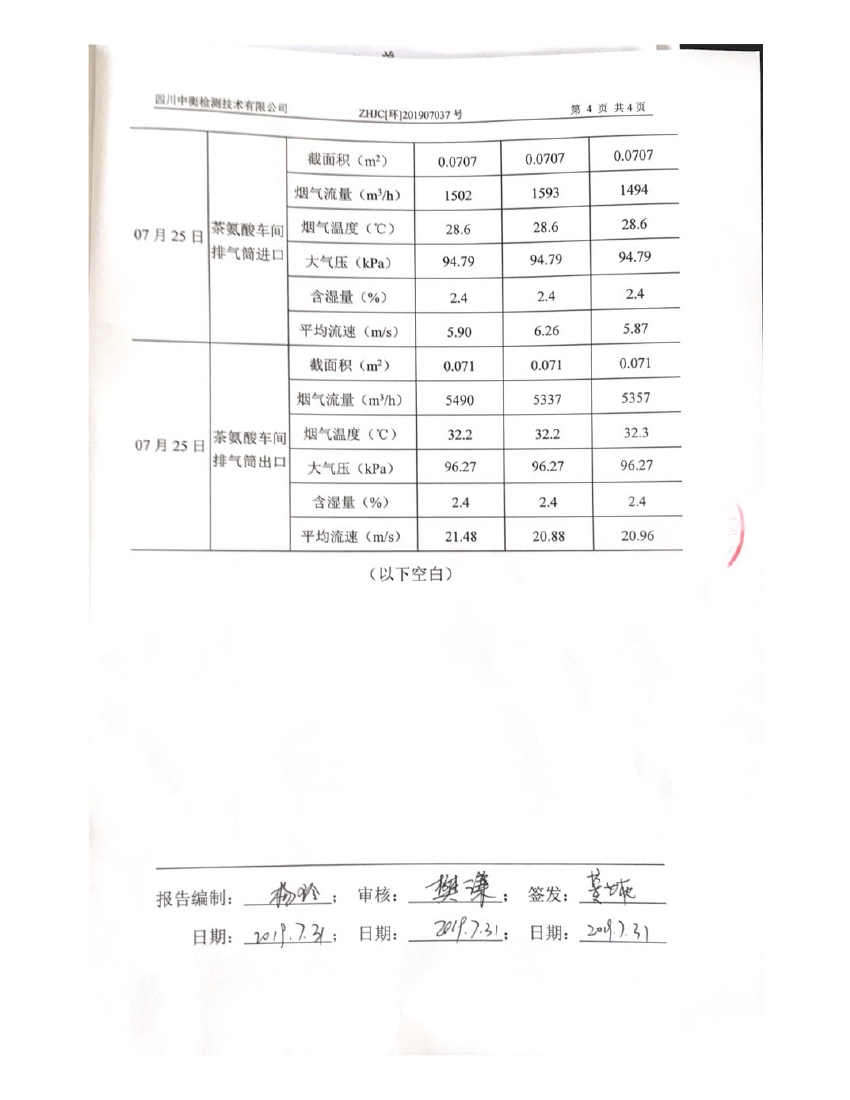 四川中衡检测技术有限公司 ZHJC[环]201907037号 第 4 页 共 4 页
07月25日 茶氨酸车间排气筒进口 截面积（m²） 0.0707 0.0707 0.0707
烟气流量（m³/h） 1502 1593 1494
烟气温度（℃） 28.6 28.6 28.6
大气压（kPa） 94.79 94.79 94.79
含湿量（%） 2.4 2.4 2.4
平均流速（m/s） 5.90 6.26 5.87
07月25日 茶氨酸车间排气筒出口 截面积（m²） 0.071 0.071 0.071
烟气流量（m³/h） 5490 5337 5357
烟气温度（℃） 32.2 32.2 32.3
大气压（kPa） 96.27 96.27 96.27
含湿量（%） 2.4 2.4 2.4
平均流速（m/s） 21.48 20.88 20.96
（以下空白）
报告编制： ； 审核： ； 签发：
日期：2019.7.31； 日期：2019.7.31； 日期：2019.7.31